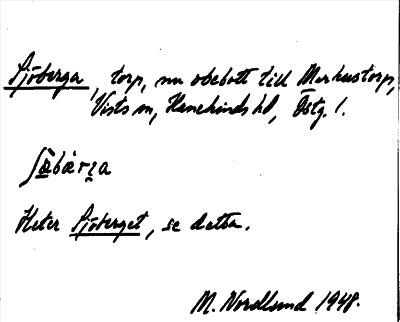 Sjöberga, torp, nu obebott till Markustorp,
Vists sn, Hanekinds hd, Östg. l.
ʃö̀bær̯a
Heter Sjöberget, se detta.
M. Nordlund 1948.